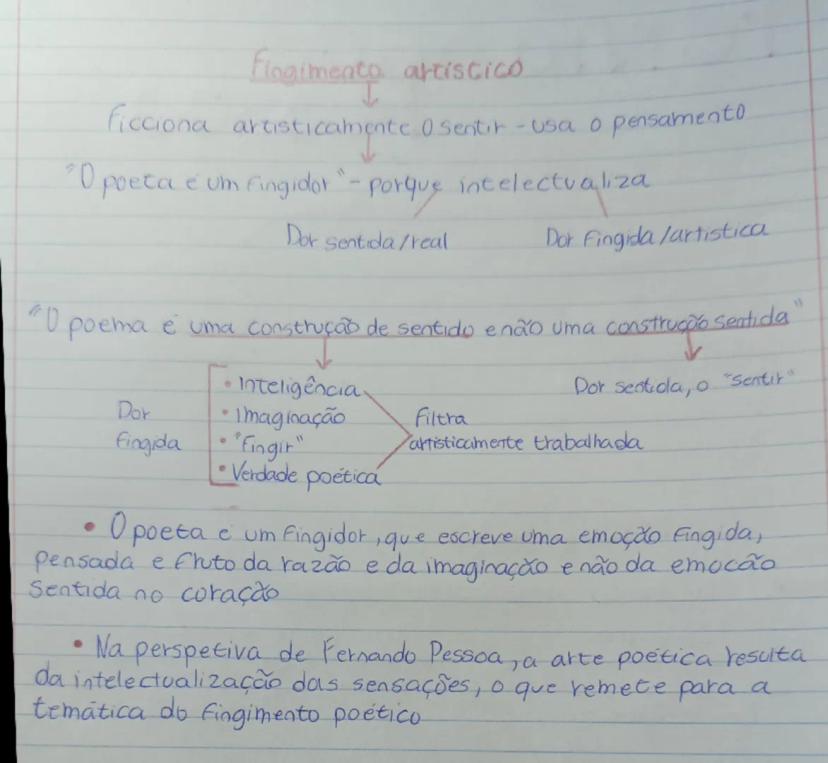 Fingimento artístico
Ficciona artisticamente o sentir - usa o pensamento
"O poeta é um fingidor" - porque intelectualiza
Dor sentida/real Dor fingida/artística
"O poema é uma construção de sentido e não uma construção sentida"
• Inteligência Dor sentida, o "sentir"
Dor • Imaginação Filtra
fingida • "Fingir" artisticamente trabalhada
• Verdade poética
• O poeta é um fingidor, que escreve uma emoção fingida,
pensada e fruto da razão e da imaginação e não da emocão
sentida no coração
• Na perspetiva de Fernando Pessoa, a arte poética resulta
da intelectualização das sensações, o que remete para a
temática do fingimento poético